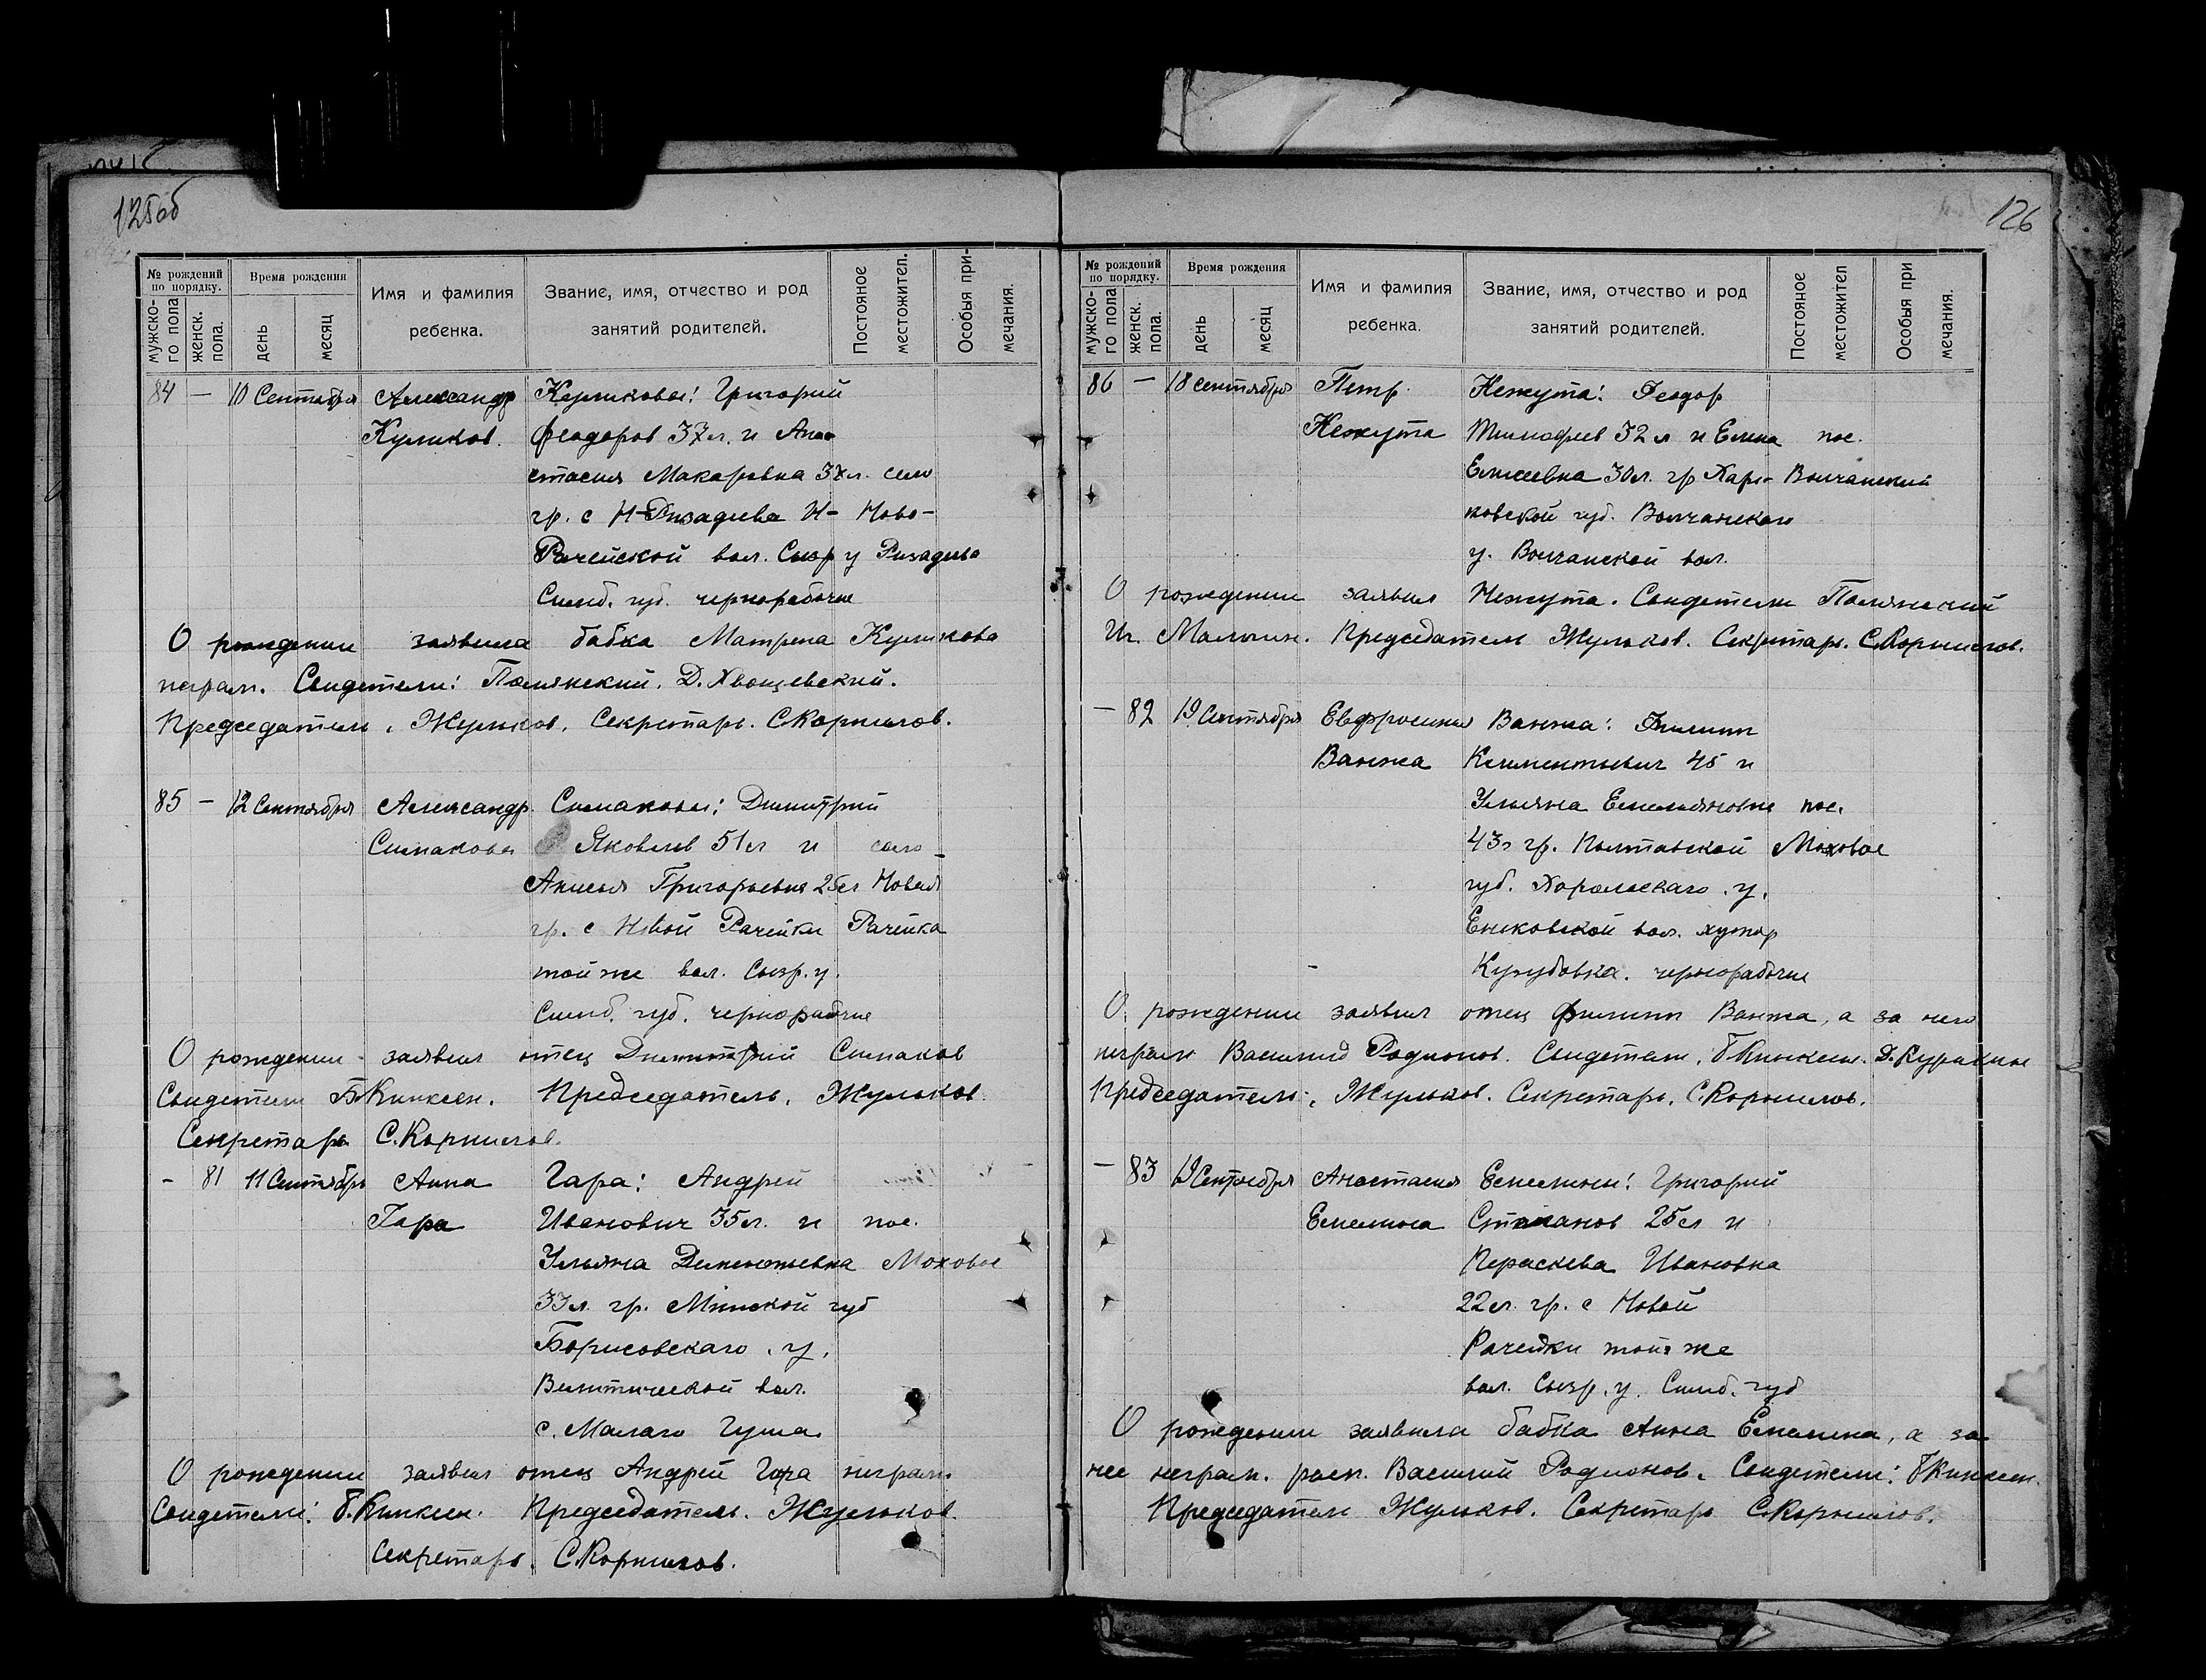 125об
№ рождений по порядку.
мужско-го пола
женск. пола.
Время рождения
день
месяц
Имя и фамилия ребенка.
Звание, имя, отчество и род занятий родителей.
Постоянное местожител.
Особыя при-мечания.
84 — 10 Сентября Александр Куликовы: Григорий
Куликов. Феодоров 37 л. и Ана-
стасия Макаровна 37 л. село
гр. с Н-Ризадеева Н- Ново-
Рачейской вол. Сызр у Ризадеево
Симб. губ. чернорабочие
О рождении заявила бабка Матрена Куликова
неграм. Свидетели: Полянский. Д. Хвощевский.
Председатель, Жульков. Секретарь. С.Корнилов.
85 — 12 Сентября Александр Симаковы: Димитрий
Симаков Яковлев 51 л и село
Анисья Григорьевна 25 л Новая
гр. с Новой Рачейки Рачейка
той же вол. Сызр. у.
Симб. губ. чернорабочие
О рождении заявил отец Димитрий Симаков
Свидетели Б.Кинксен. Председатель. Жульков
Секретарь С.Корнилов.
- 81 11 Сентябрь Анна Гара: Андрей
Гара Иванович 35 л. и пос.
Ульяна Дементьевна Моховое
33 л. гр. Минской губ
Борисовскаго у.
вол.
с. Малаго
О рождении заявил отец Андрей Гара неграм.
Свидетели: Б.Кинксен. Председатель. Жульков.
Секретарь. С.Корнилов.
126
№ рождений по порядку.
мужско-го пола
женск. пола.
Время рождения
день
месяц
Имя и фамилия ребенка.
Звание, имя, отчество и род занятий родителей.
Постояное местожител
Особыя при мечания.
86 — 18 сентября Петр. Нежута: Феодор
Нежута Тимофеев 32 л и Елена пос.
Елисеевна 30 л. гр Харь- Волчанский
ковской губ. Волчанскаго
у. Волчанской вол.
О рождении заявил Нежута. Свидетели Полянский
Ив. Малыгин. Председатель Жульков. Секретарь. С.Корнилов.
— 82 19 Сентября Евфросиния Ванжа: Филипп
Ванжа Климентьевич 45 и
Ульяна Емельяновна пос.
43 л гр. Полтавской Моховое
губ. Хорольскаго у.
Ековской вол. хутор
Кузубовка. чернорабочие
О рождении заявил отец Филипп Ванжа, а за него
неграм Василий Родионов. Свидетели, Б.Кинксен. Д.Куракин
Председатель, Жульков. Секретарь. С.Корнилов.
— 83 19 Сентября Анастасия Емелины: Григорий
Емелина Степанов 25 л и
Параскева Ивановна
22 л. гр. с Новой
Рачейки той же
вол. Сызр. у. Симб. губ
О рождении заявила бабка Анна Емелина, а за
нее неграм. расп. Василий Родионов. Свидетели: Б.Кинксен.
Председатель Жульков. Секретарь С.Корнилов.